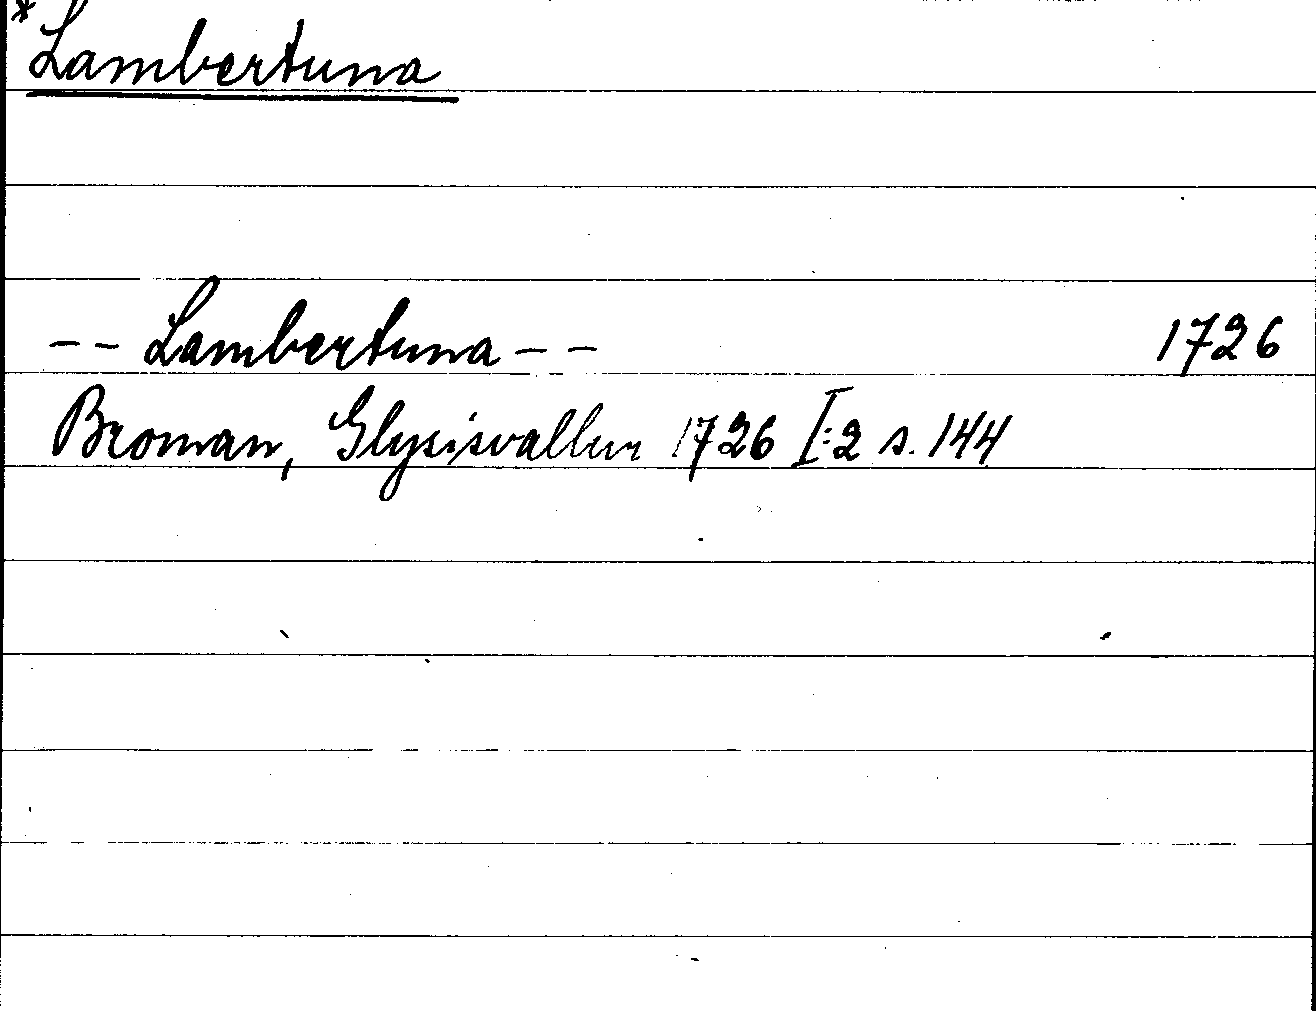 *Lambertuna
-- Lambertuna -- 1726
Broman, Glysisvallur 1726 I:2 s. 144